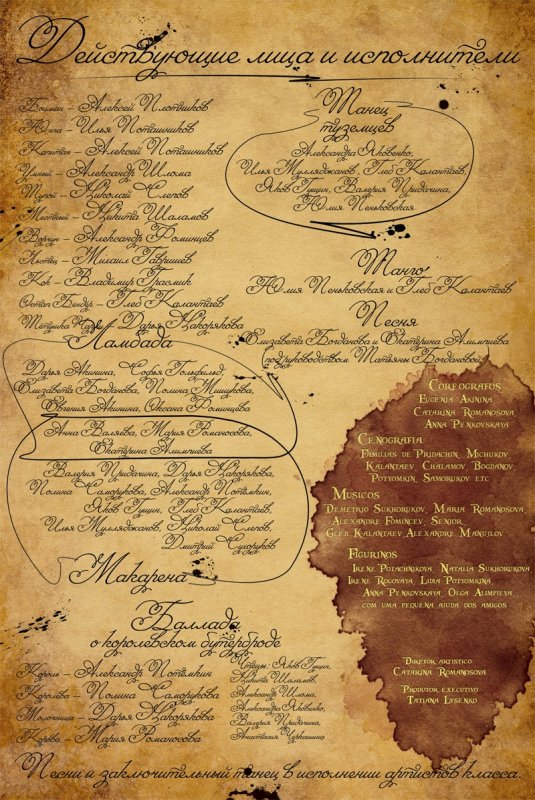 Действующие лица и исполнители
Боцман – Алексей Плотников
Юнга – Илья Поташников
Капитан – Алексей Поташников
Умный – Александр Шлома
Тупой – Николай Слепов
Местный – Никита Шаламов
Ворчун – Александр Фоминцев
Льстец – Михаил Гавришев
Кок – Владимир Грасмик
Остап Бендер – Глеб Калантаев
Матушка – Дарья Цакорякова
Танец
туземцев
Александра Яковенко,
Илья Мулляджанов, Глеб Калантаев,
Яков Гущин, Валерия Придачина,
Юлия Пеньковская
Танго
Юлия Пеньковская и Глеб Калантаев
Песня
Елизавета Богданова и Екатерина Алимпиева
под руководством Татьяны Богдановой
Ламбада
Дарья Акинина, Софья Гольфильд,
Елизавета Богданова, Полина Мишукова,
Евгения Акинина, Оксана Фоминцева
Анна Валяева, Мария Романосова,
Екатерина Алимпиева
Валерия Придачина, Дарья Цакорякова,
Полина Саморукова, Александр Потёмкин,
Яков Гущин, Глеб Калантаев,
Илья Мулляджанов, Николай Слепов,
Дмитрий Сухоруков
Макарена
Баллада
о королевском бутерброде
Король – Александр Потёмкин
Королева – Полина Саморукова
Молочница – Дарья Цакорякова
Корова – Мария Романосова
Чтецы: Яков Гущин,
Никита Шаламов,
Александр Шлома,
Александра Яковенко,
Валерия Придачина,
Анастасия Черкашина
Coreografos
Eugenia Akinina
Catarina Romanosova,
Anna Penkovskaya
Cenografia
Familias de Pridachin, Michukov,
Kalantaev, Chalamov, Bogdanov,
Potyomkin, Samorukov etc
Musicos
Demetrio Sukhorukov, Maria Romanosova,
Alexandre Fomincev, Senior,
Gleb Kalantaev Alexandre Manujlov
Figurinos
Irene Potachnikova, Natalia Sukhorukova
Irene Rogovaya, Lidia Potyomkina,
Anna Penkovskaya, Olga Alimpieva,
com uma pequena ajuda dos amigos
Diretor artistico
Catarina Romanosova
Produtor executivo
Tatiana Lysenko
Песни и заключительный танец в исполнении артистов класса.